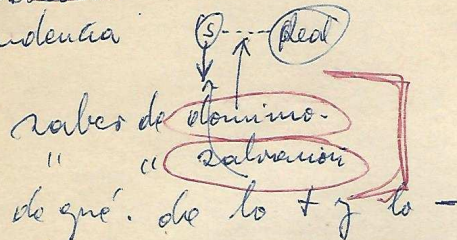 ndencia S Real
saber de dominio.
" " salvación
de qué. de lo + y lo -